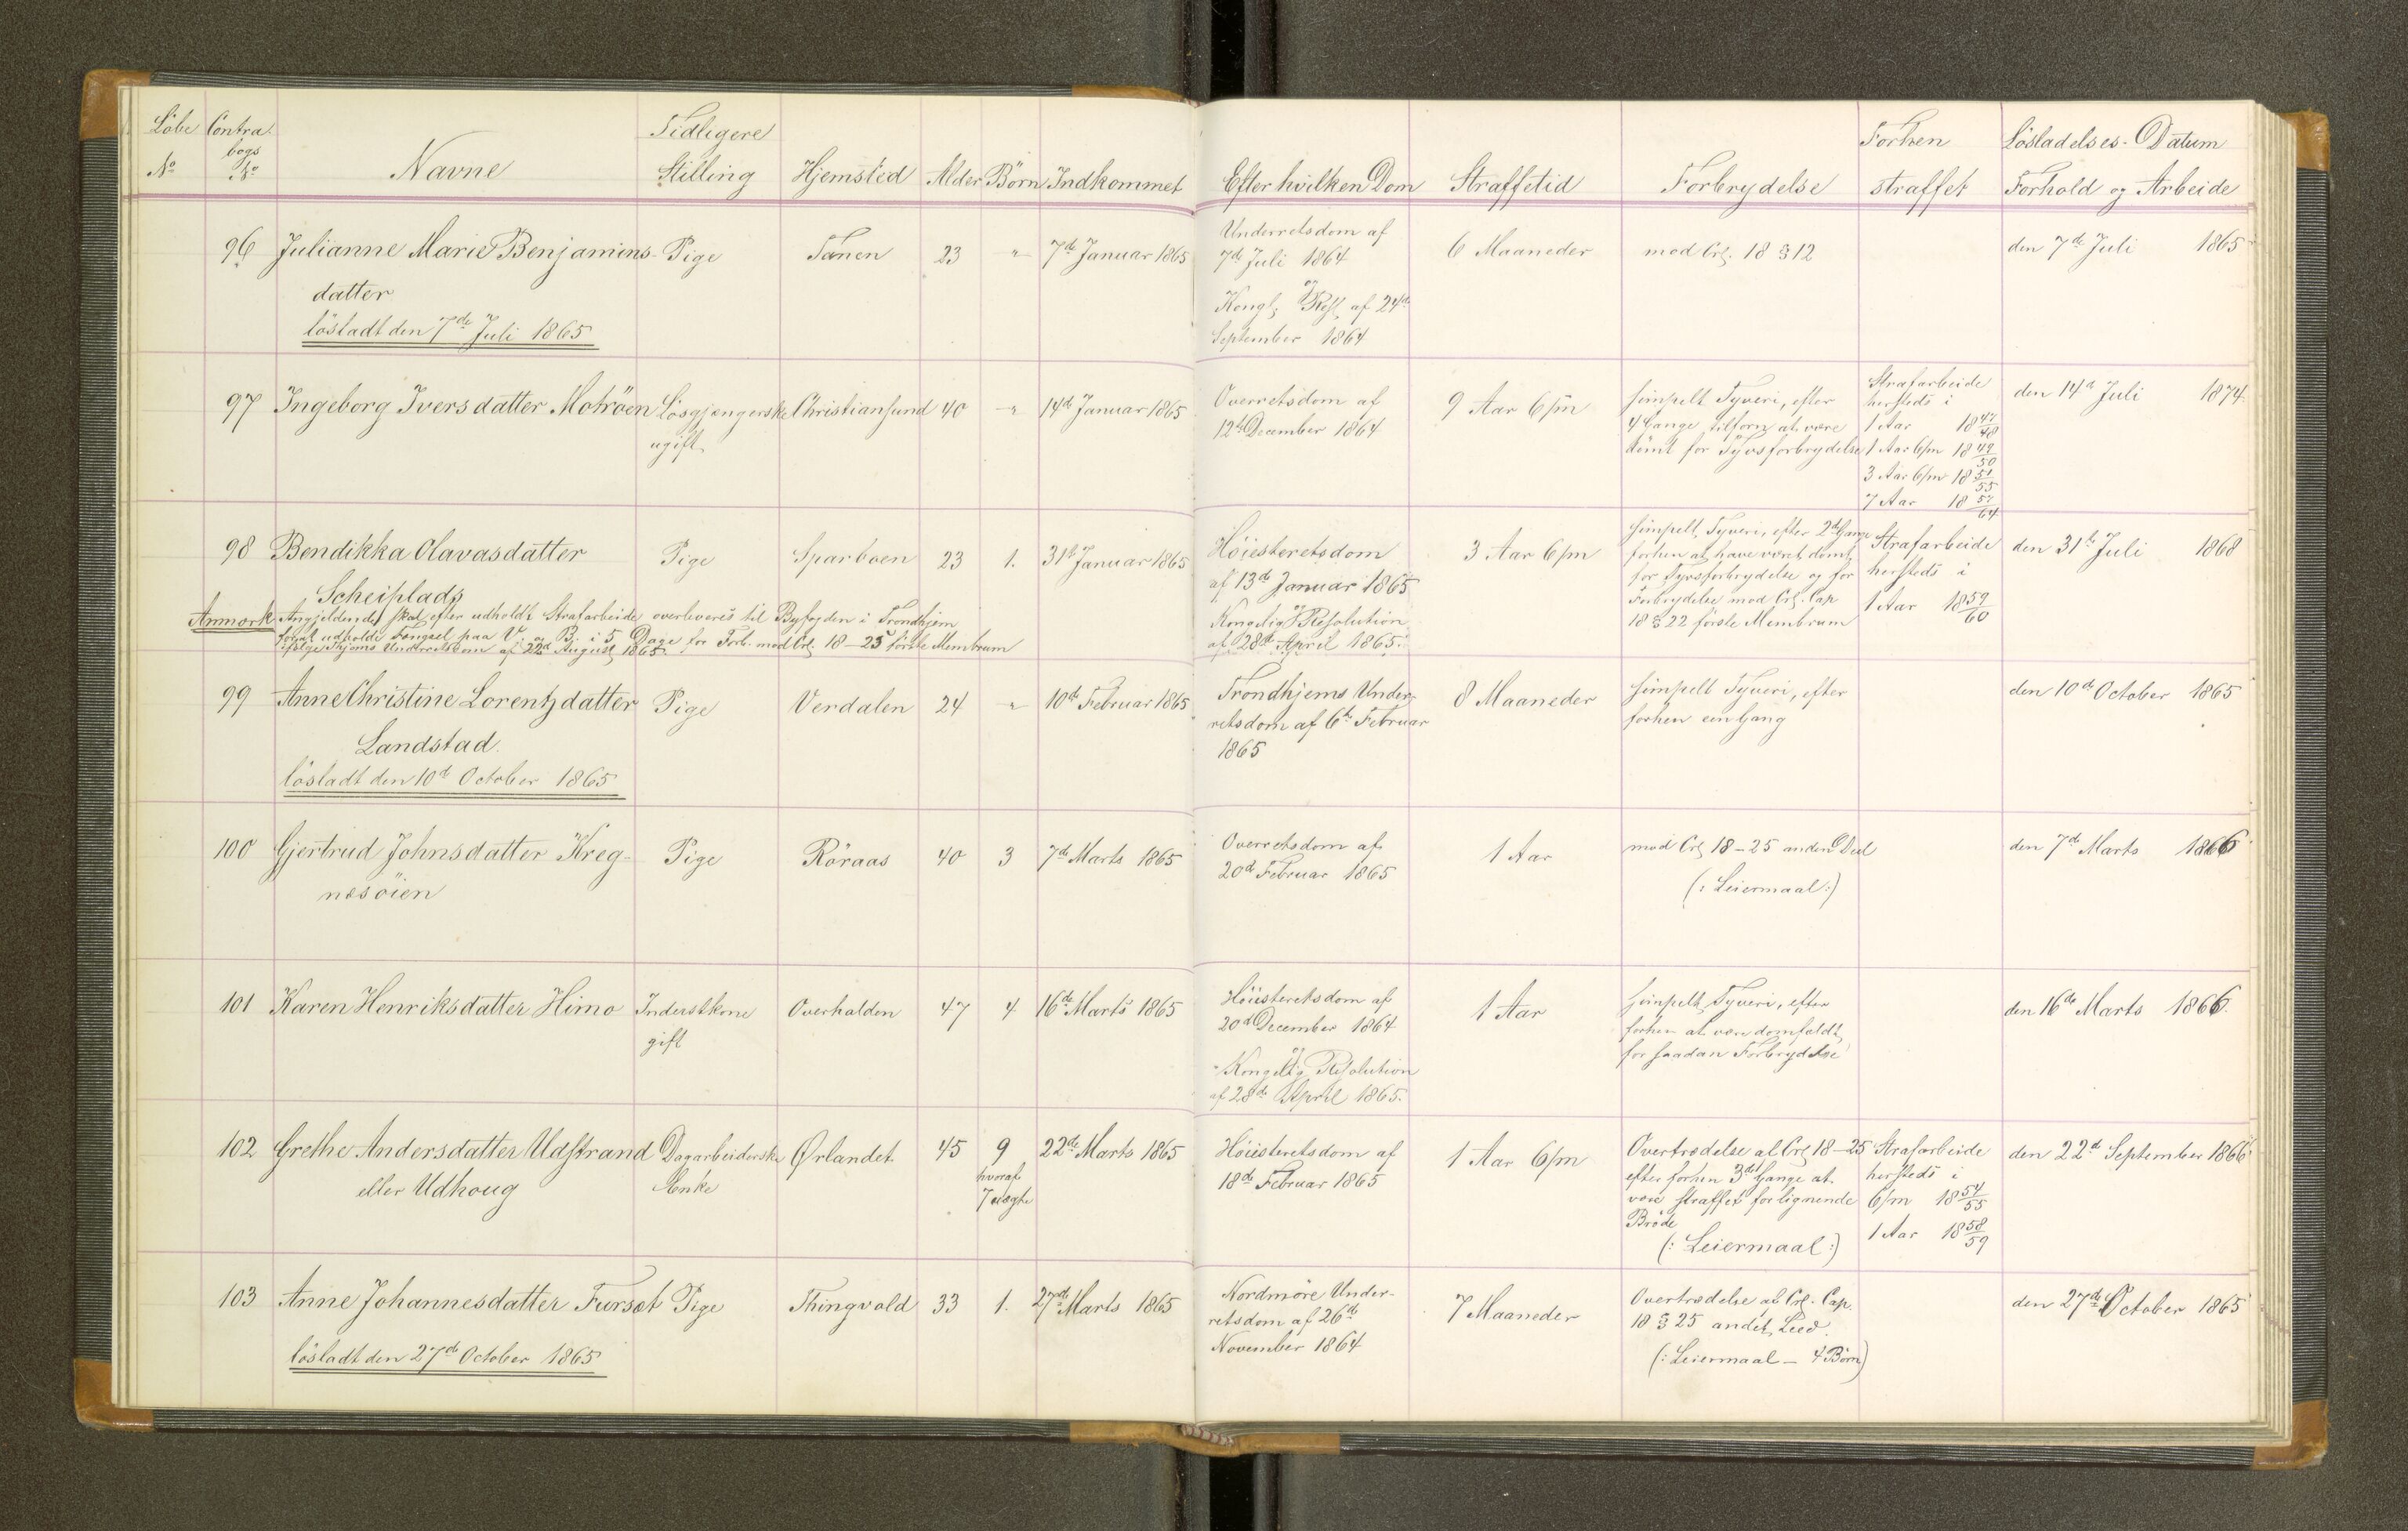 Löbe Contra- Tidligere Forhen Lösladelses-Datum
No bogs No Navne Stilling Hjemsted Alder Börn Indkommet Efter hvilken Dom Straffetid Forbrydelse straffet Forhold og Arbeide
96 Julianne Marie Benjamins- Pige Tanen 23 " 7de Januar 1865
datter
lösladt den 7de Juli 1865
Underretsdom af
7de Juli 1864
og
Kongl. Resl. af 24de
September 1864
6 Maaneder
mod Crl. 18 § 12
den 7de Juli 1865
97 Ingeborg Iversdatter Moröen Lösgjengerske Christiansund 40 " 14de Januar 1865
ugift
Overretsdom af
12te December 1864
9 Aar 6/m
simpelt Tyveri, efter
4 Gange tilforn at være
dömt for Tyvsforbrydelse
Strafarbeide
hersteds i
1 Aar 18 47/48
1 Aar 6/m 18 49/50
3 Aar 6/m 18 51/55
7 Aar 18 57/64
den 14de Juli 1874.
98 Bendikka Olavasdatter Pige Sparboen 23 1. 31te Januar 1865
Scheiplads
Anmærk Angjeldende skal efter udholdt Strafarbeide overleveres til Byfogden i Trondhjem
for at udholde Fængsel paa V. og B. i 5 Dage for Forb. mod Crl. 18-25 förste Membrum
ifølge Thjems Underretsdom af 22de August 1865.
Höiesteretsdom
af 13de Januar 1865
og
Kongelig Resolution
af 28de April 1865.
3 Aar 6/m
simpelt Tyveri, efter 2de Gange
forhen at have været dömt
for Tyvsforbrydelse og for
Forbrydelse mod Crl. Cap
18 § 22 förste Membrum
Strafarbeide
hersteds i
1 Aar 18 59/60
den 31te Juli 1868
99 Anne Christine Lorentzdatter Pige Verdalen 24 " 10de Februar 1865
Landstad.
lösladt den 10de October 1865
Trondhjems Under-
retsdom af 6te Februar
1865
8 Maaneder
simpelt Tyveri, efter
forhen een Gang
den 10de October 1865
100 Gjertrud Johnsdatter Kreg- Pige Röraas 40 3 7de Marts 1865
næsöien
Overretsdom af
20de Februar 1865
1 Aar
mod Crl 18-25 anden Deel
(: Leiermaal :)
den 7de Marts 1866
101 Karen Henriksdatter Himo Inderstkone Overhalden 47 4 16de Marts 1865
gift
Höiesteretsdom af
20de December 1864
og
Kongelig Resolution
af 28de April 1865.
1 Aar
simpelt Tyveri, efter
forhen at være domfældt
for saadan Forbrydelse
den 16de Marts 1866.
102 Grethe Andersdatter Udstrand Dagarbeiderske Ørlandet 45 9 22de Marts 1865
eller Udhoug Enke hvoraf
7 uægte
Höiesteretsdom af
18de Februar 1865
1 Aar 6/m
Overtrædelse af Crl 18-25
efter forhen 3de Gange at
være straffet for lignende
Bröde
(: Leiermaal :)
Strafarbeide
hersteds i
6/m 18 54/55
1 Aar 18 58/59
den 22de September 1866
103 Anne Johannesdatter Furset Pige Thingvold 33 1. 27de Marts 1865
lösladt den 27de October 1865
Nordmöre Under-
retsdom af 26de
November 1864
7 Maaneder
Overtrædelse af Crl. Cap.
18 § 25 andet Leed.
(: Leiermaal - 4 Börn)
den 27de October 1865